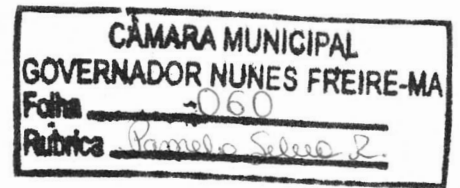 CÂMARA MUNICIPAL
GOVERNADOR NUNES FREIRE-MA
Folha 060
Rubrica Pamela Silva R.